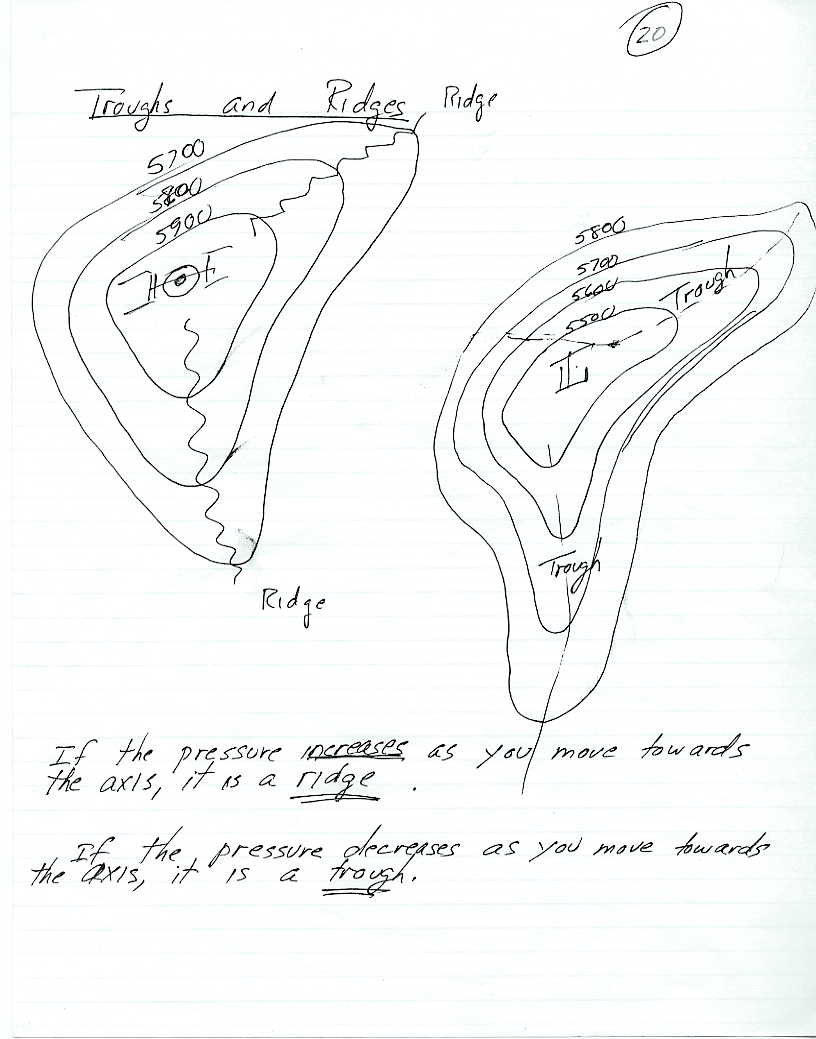 20
Troughs and Ridges
Ridge
5700
5800
5900
H
5800
5700
5600
5500
Trough
L
Trough
Ridge
If the pressure increases as you move towards
the axis, it is a ridge.
If the pressure decreases as you move towards
the axis, it is a trough.